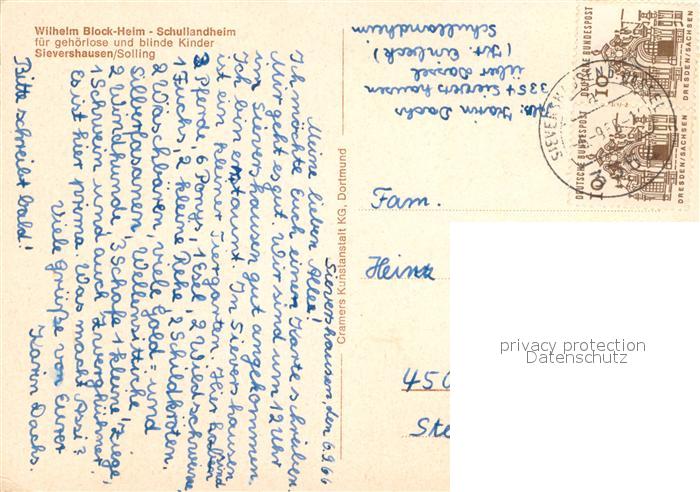 Wilhelm Block-Heim - Schullandheim
für gehörlose und blinde Kinder
Sievershausen/Solling
Sievershausen, den 6.9.66
Meine lieben Alle!
Ich möchte Euch einen Karte schreiben.
Mir geht es gut. Wir sind um 12 Uhr
in Sievershausen gut angekommen.
Ich bin erstaunt. In Sievershausen
ist ein kleiner Tiergarten. Hier haben sind
3 Pferde, 6 Ponys, 1 Esel, 2 Wildschweine
1 Fuchs, 2 kleine Rehe, 2 Schildkröten,
2 Waschbären, viele Gold- und
Silberfasanen, Wellensittiche,
2 Windhunde, 3 Schafe 1 kleine Ziege,
1 Schwein und auch Zwerghühner.
Es ist hier prima. Was macht Assi?
Viele Grüße von Eurer
Karin Dachs.
Bitte schreibt bald!
Cramers Kunstanstalt KG, Dortmund
Karin Dachs
3354 Sievershausen
über Dassel
(Kr. Einbeck)
Schullandheim
DEUTSCHE BUNDESPOST
10
DRESDEN/SACHSEN
DEUTSCHE BUNDESPOST
10
DRESDEN/SACHSEN
Fam.
Heinz
450
privacy protection
Datenschutz